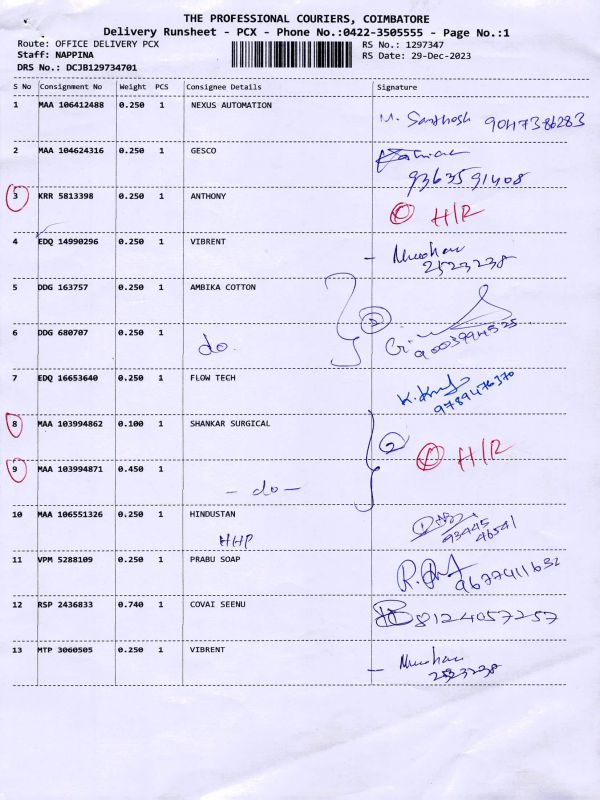 THE PROFESSIONAL COURIERS, COIMBATORE
Delivery Runsheet - PCX - Phone No.:0422-3505555 - Page No.:1
Route: OFFICE DELIVERY PCX RS No.: 1297347
Staff: NAPPINA RS Date: 29-Dec-2023
DRS No.: DCJB129734701
S No Consignment No Weight PCS Consignee Details Signature
1 MAA 106412488 0.250 1 NEXUS AUTOMATION
M. Santhosh 9047386283
2 MAA 104624316 0.250 1 GESCO
9363591408
3 KRR 5813398 0.250 1 ANTHONY
H/R
4 EDQ 14990296 0.250 1 VIBRENT
2523238
5 DDG 163757 0.250 1 AMBIKA COTTON
2
6 DDG 680707 0.250 1 do
9003994525
7 EDQ 16653640 0.250 1 FLOW TECH
9789476370
8 MAA 103994862 0.100 1 SHANKAR SURGICAL
2 H/R
9 MAA 103994871 0.450 1
- do -
10 MAA 106551326 0.250 1 HINDUSTAN
HHP 93445
46541
11 VPM 5288109 0.250 1 PRABU SOAP
9677411632
12 RSP 2436833 0.740 1 COVAI SEENU
8124057257
13 MTP 3060505 0.250 1 VIBRENT
2523238